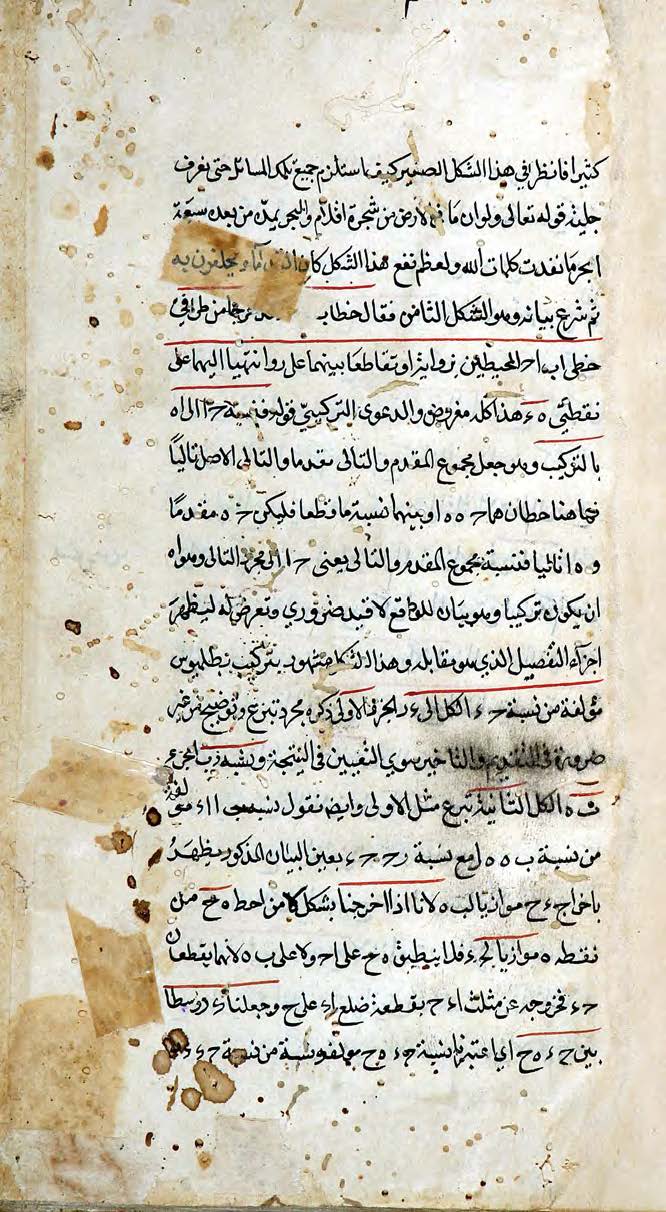 كثيرا فانظر في هذا الشكل الصغير كيف استلزم جميع تلك المسائل حتى تعرف
جلية قوله تعالى ولو ان ما في الارض من شجرة اقلام والبحر يمده من بعده سبعة
ابحر ما نفدت كلمات الله ولعظم نفع هذا الشكل كان ويحلفون به
ثم شرع بيانه وهو الشكل الثامن فقال خطا ب من طرفي
خطي اب اح المحيطين بزواية او تقاطعا بينهما على ر وانتهيا اليهما على
نقطتي ه ء هذا كله مفروض والدعوى التركيبي قوله فنسبة ح ا الى اه
بالتركيب وهو جعل مجموع المقدم والتالى مقدما والتالى الاصل تاليا
فهاهنا خطان هما ح ه ه ا وبينهما نسبة ما قطعا فليكن ح ه مقدما
و ه ا تاليا فنسبة مجموع المقدم والتالى يعنى ح ا الى مجرد التالى وهو اه
ان يكون تركيبا وهو بيان للواقع لا قيد ضروري وتعرض له ليظهر
اجزاء التفصيل الذي هو مقابله وهذا الشكل مشهور بتركيب بطلميوس
مؤلفة من نسبة ح ء الكل الى ء ر الجزء الاولى ذكره مجرد تبرع وتوضيح من غير
ضرورة في التقديم والتاخير سوى التعيين في النتيجة ونسبة رب الجزء
ب ه الكل الثانية تبرع مثل الاولى وايضا نقول نسبة ا ا ء مولفة
من نسبة ب ه ه ر مع نسبة ر ح ح ء بعين البيان المذكور يظهر
باخراج ء ح موازيا لب ه لانا اذا اخرجنا بشكل لا من احط ه ح من
نقطه ه موازيا لح ء فلا ينطبق ه ح على اح ولا على ب ه لانهما يقطعان
ح ء فخروجه عن مثلث اء ح بقطعة ضلع اء على ح وجعلنا ء ر وسطا
بين ح ء ه ح اي اعتبرنا نسبة ح ء ه ح مولفة من نسبة ح ء ء